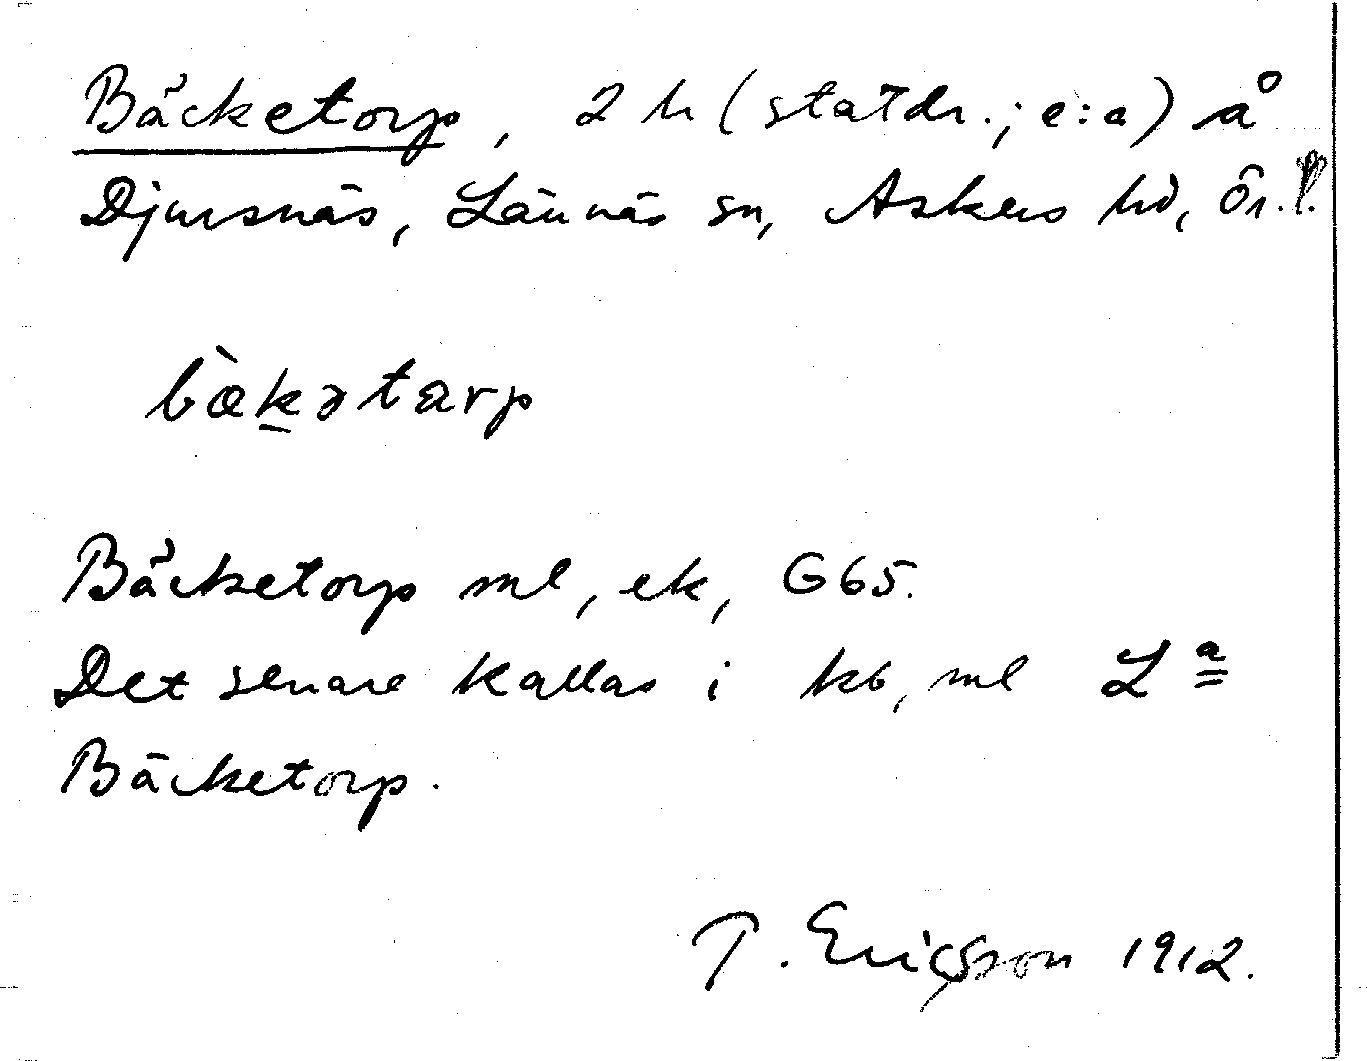 Bäcketorp, 2 h (statdr.; e:a) å
Djursnäs, Lännäs sn, Askers hd, Ör. l.
bæ̀kətarp
Bäcketorp ml, ek, G65.
Det senare kallas i kb, ml La
Bäcketorp.
T. Ericsson 1912.